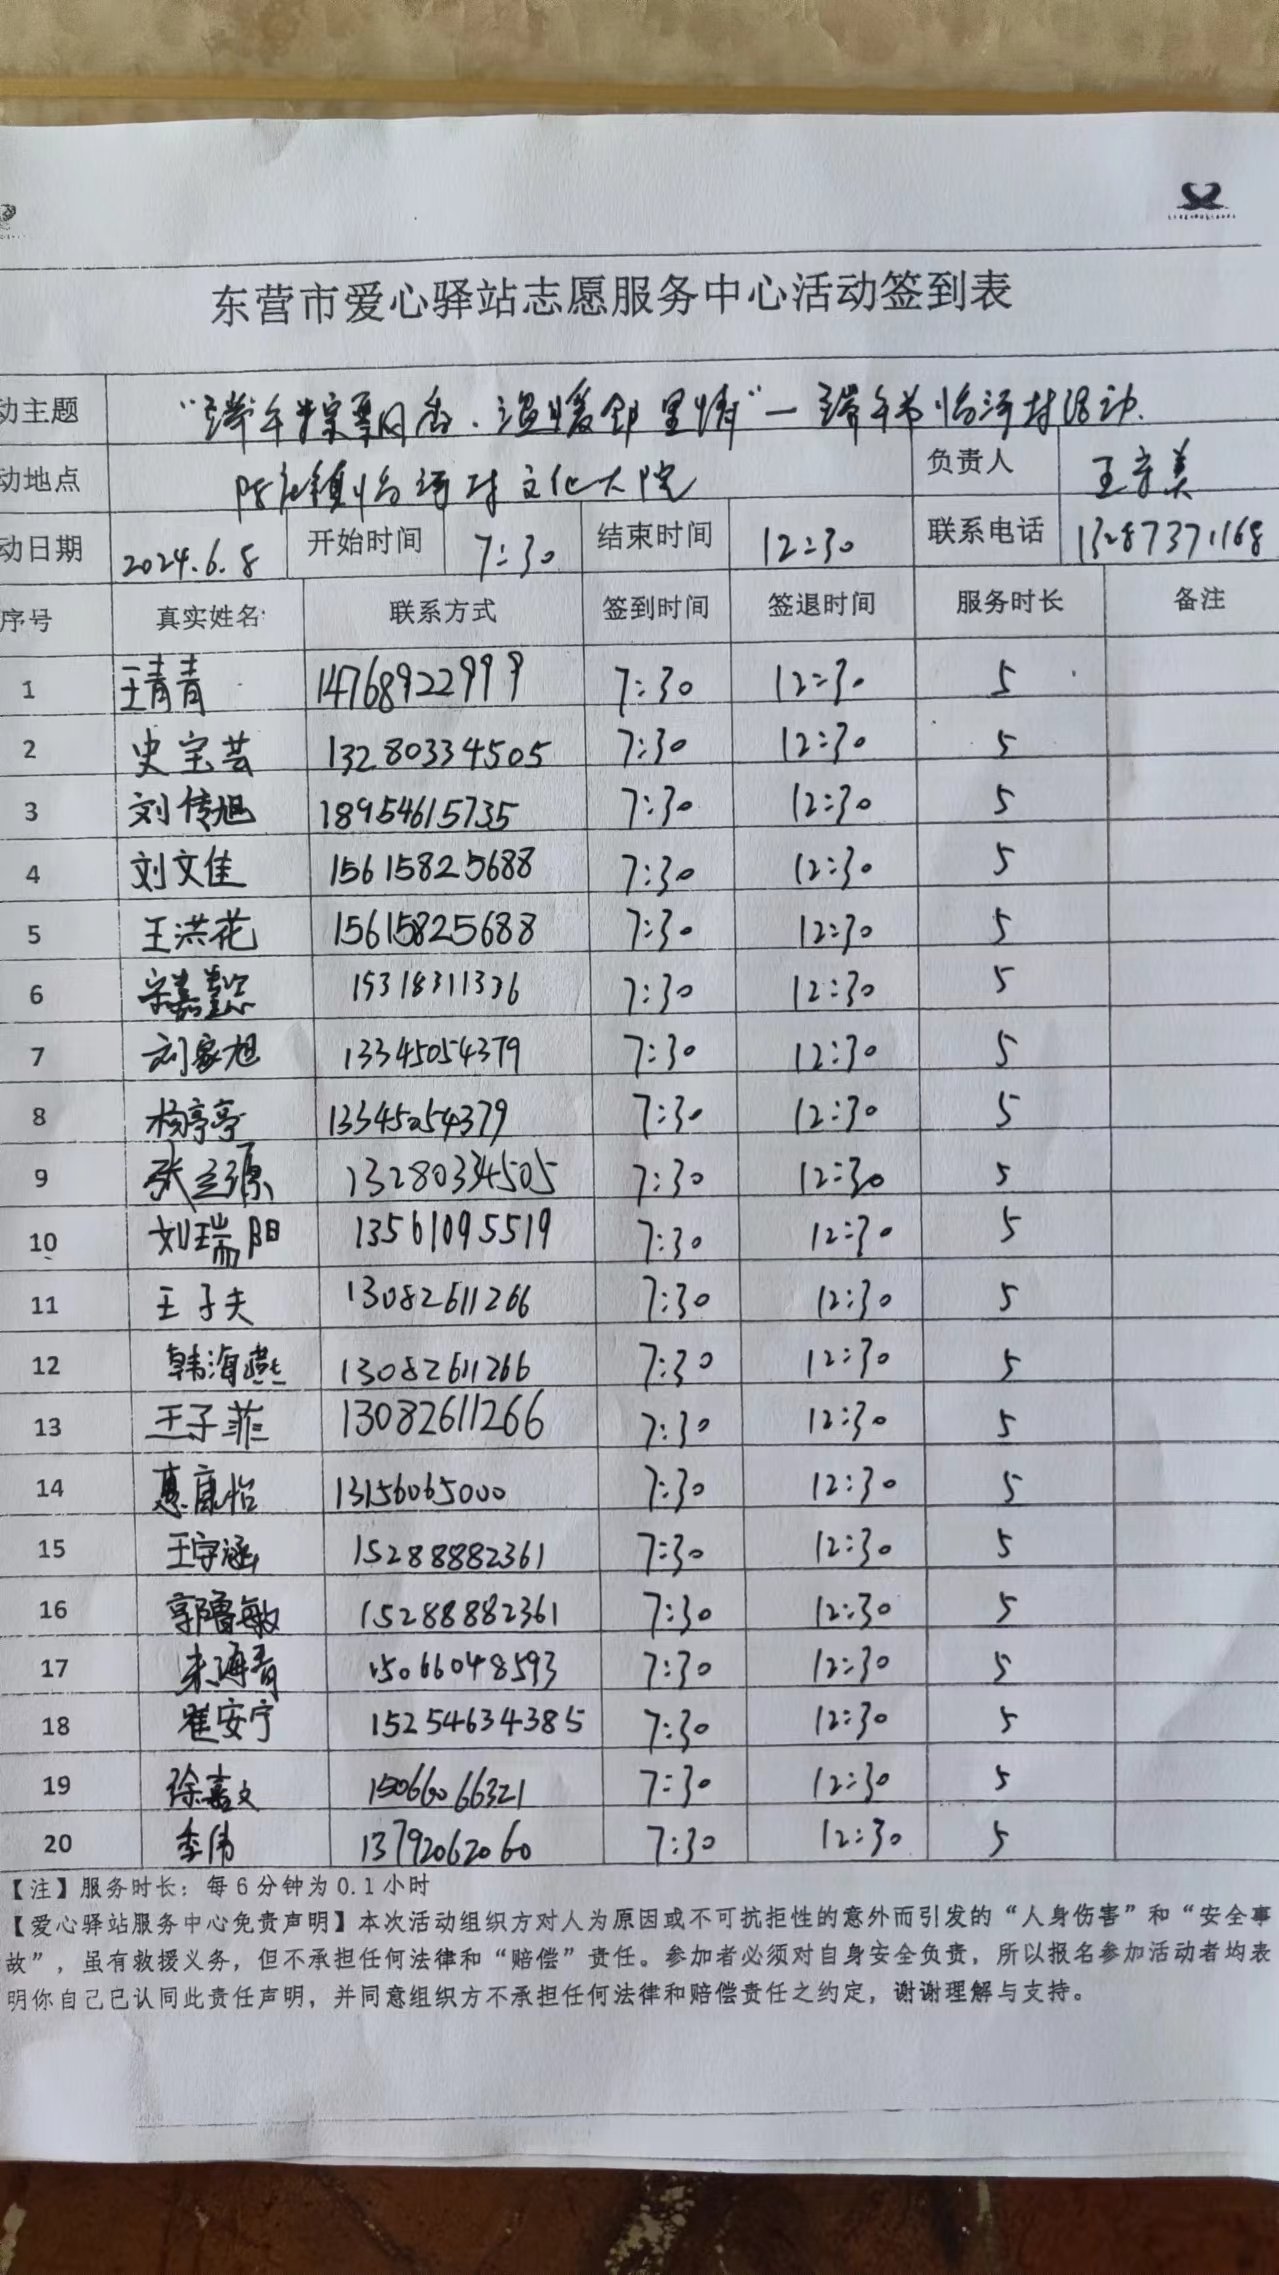 东营市爱心驿站志愿服务中心活动签到表
动主题 “端午粽飘香·温暖邻里情”—端午节临河村活动.
动地点 陈庄镇临河村文化大院 负责人 王美
动日期 2024.6.8 开始时间 7:30 结束时间 12:30 联系电话 13287371168
序号 真实姓名 联系方式 签到时间 签退时间 服务时长 备注
1 王青青 14768922999 7:30 12:30 5
2 史宝芸 13280334505 7:30 12:30 5
3 刘传旭 18954615735 7:30 12:30 5
4 刘文佳 15615825688 7:30 12:30 5
5 王洪花 15615825688 7:30 12:30 5
6 宋嘉懿 15318311336 7:30 12:30 5
7 刘家旭 13345054379 7:30 12:30 5
8 杨亭亭 13345054379 7:30 12:30 5
9 张立源 13280334505 7:30 12:30 5
10 刘瑞阳 13561095519 7:30 12:30 5
11 王子夫 13082611266 7:30 12:30 5
12 韩海燕 13082611266 7:30 12:30 5
13 王子菲 13082611266 7:30 12:30 5
14 惠康怡 13156065000 7:30 12:30 5
15 王宇涵 15288882361 7:30 12:30 5
16 郭鲁敏 15288882361 7:30 12:30 5
17 宋海青 15066048593 7:30 12:30 5
18 崔安宁 15254634385 7:30 12:30 5
19 徐嘉文 15066066321 7:30 12:30 5
20 李伟 13792062060 7:30 12:30 5
【注】服务时长：每6分钟为0.1小时
【爱心驿站服务中心免责声明】本次活动组织方对人为原因或不可抗拒性的意外而引发的“人身伤害”和“安全事
故”，虽有救援义务，但不承担任何法律和“赔偿”责任。参加者必须对自身安全负责，所以报名参加活动者均表
明你自己已认同此责任声明，并同意组织方不承担任何法律和赔偿责任之约定，谢谢理解与支持。